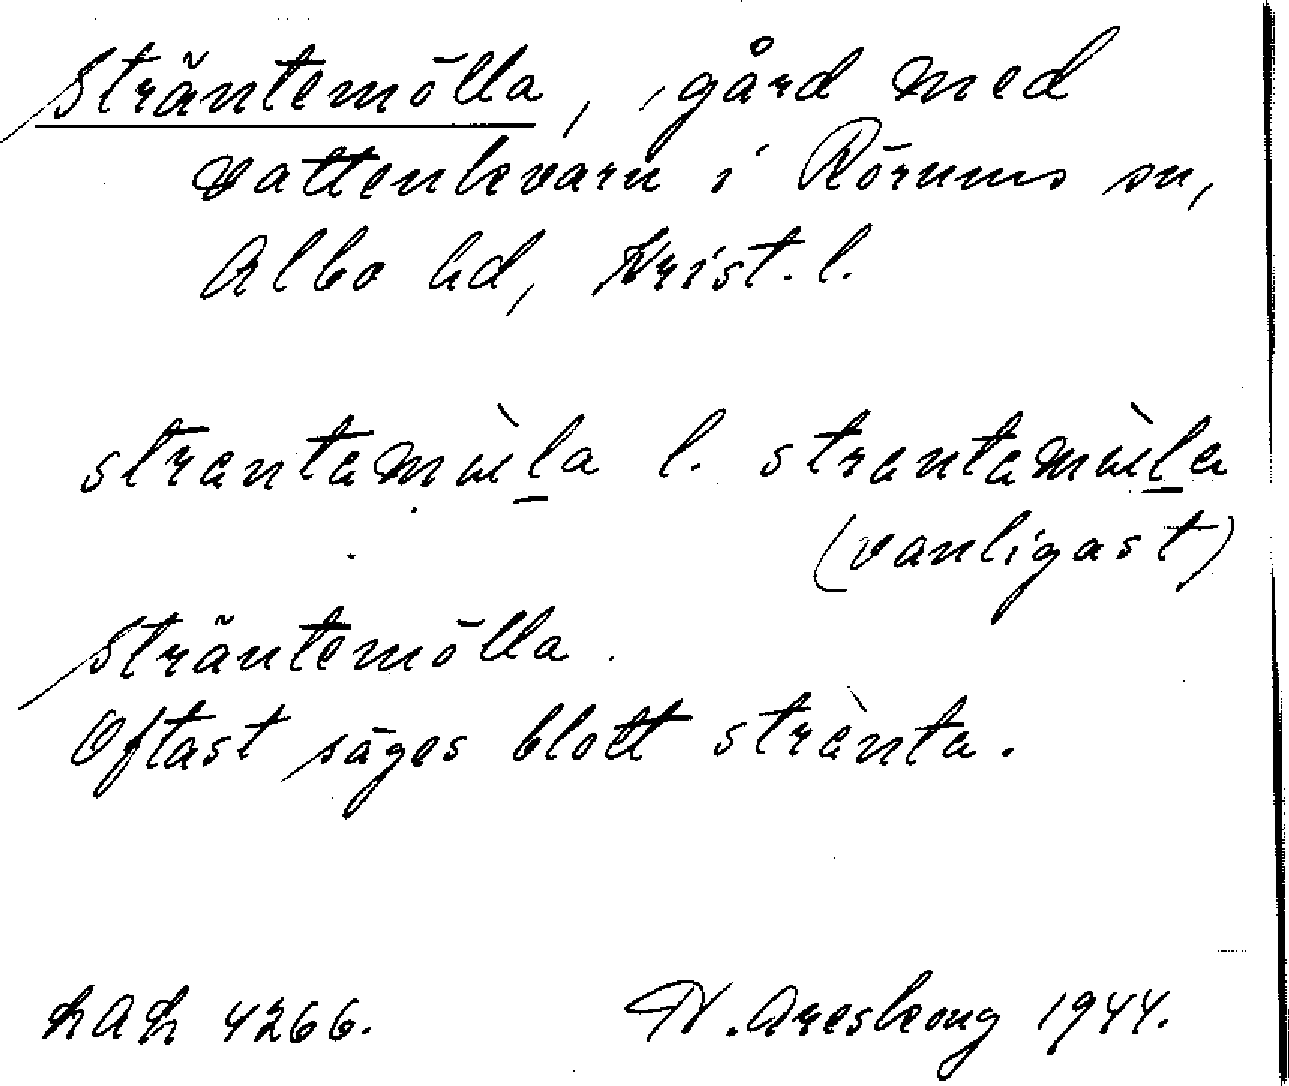 Sträntemölla, gård med
vattenkvarn i Rörums sn,
Albo hd, Krist. l.
l.
(vanligast)
Sträntemölla.
Oftast säges blott stränta.
LAL 4266. Areskoug 1944.